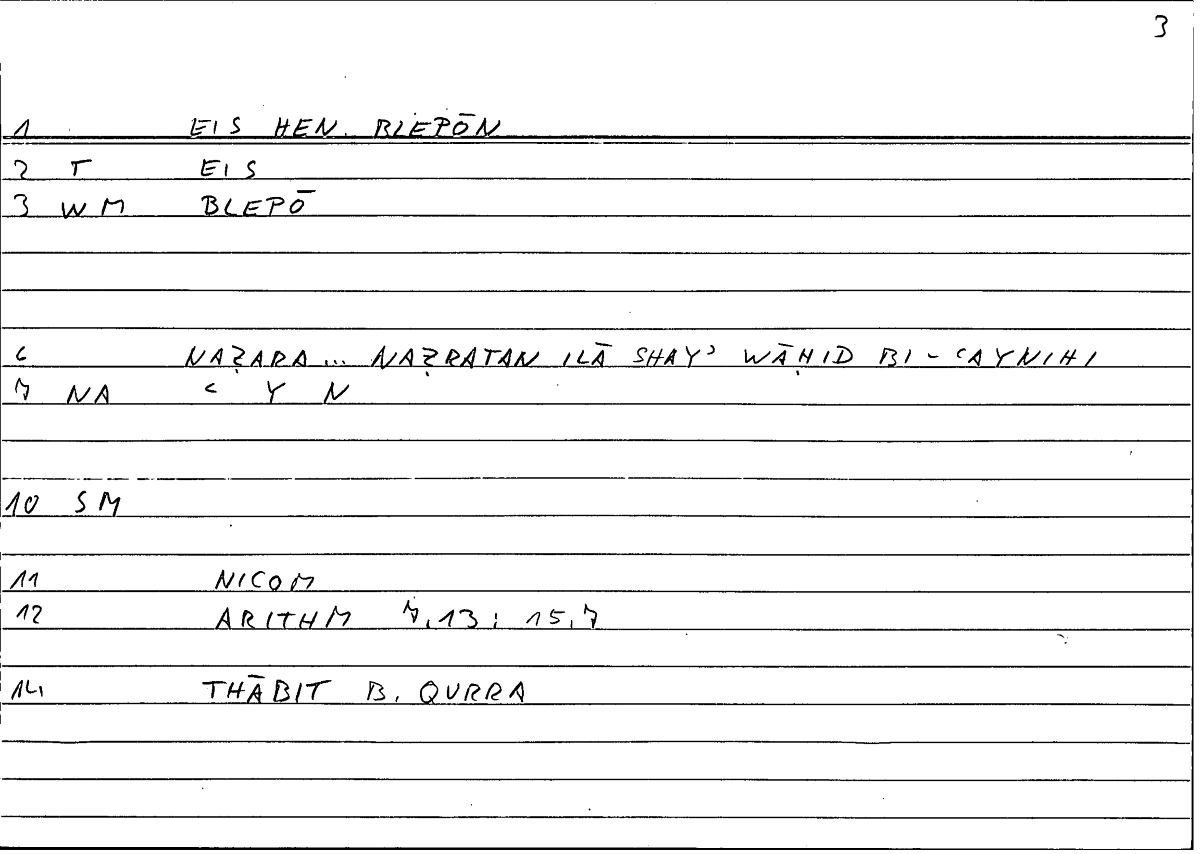 3
1 EIS HEN. BLEPŌN
2 T EIS
3 WM BLEPŌ
6 NAẒARA ... NAẒRATAN ILĀ SHAYʾ WĀḤID BI-ʿAYNIHI
7 NA ʿ Y N
10 SM
11 NICOM
12 ARITHM 7,13; 15,7
14 THĀBIT B. QURRA